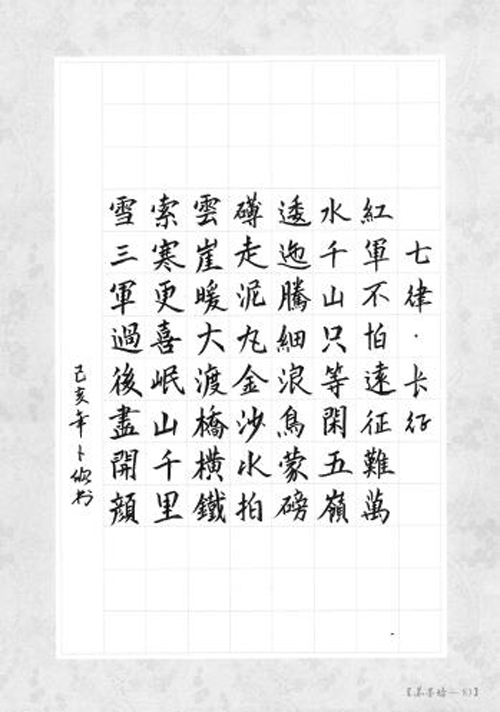 七律·长征
紅軍不怕遠征難萬
水千山只等閑五嶺
逶迤騰細浪烏蒙磅
礴走泥丸金沙水拍
雲崖暖大渡橋橫鐵
索寒更喜岷山千里
雪三軍過後盡開顔
己亥年卜 书